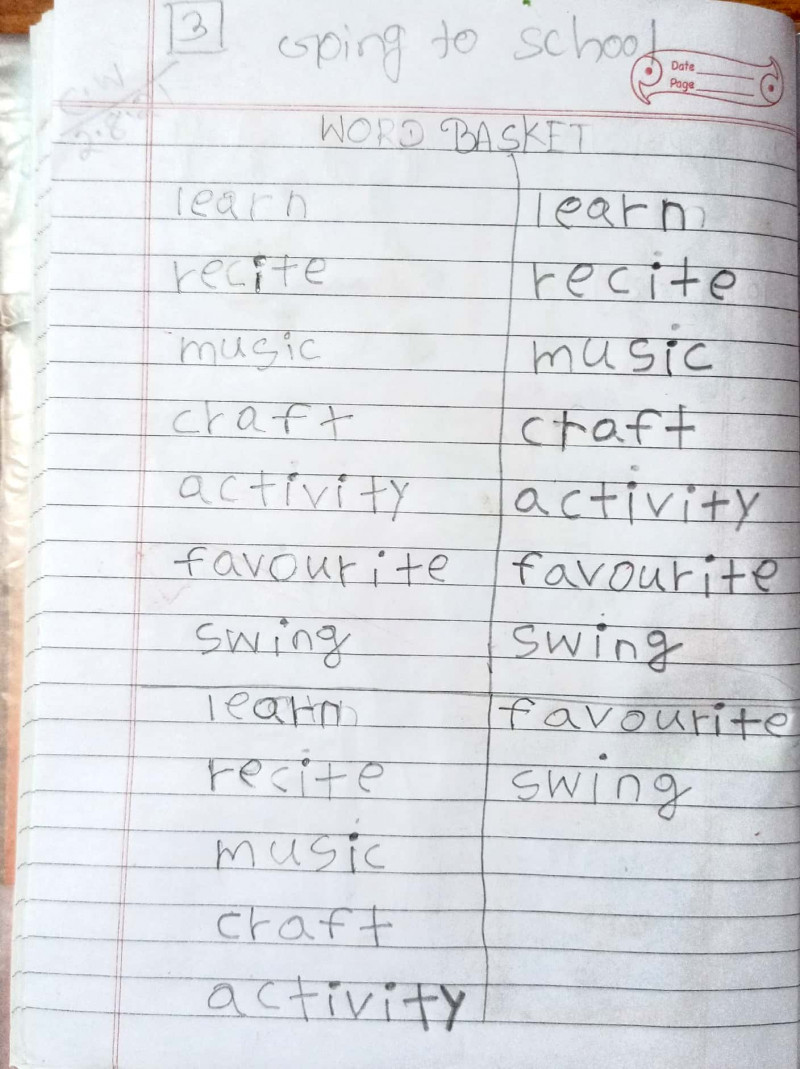 3 Going to school
Date
Page
C.W
WORD BASKET
learn learn
recite recite
music music
craft craft
activity activity
favourite favourite
swing swing
learn favourite
recite swing
music
craft
activity